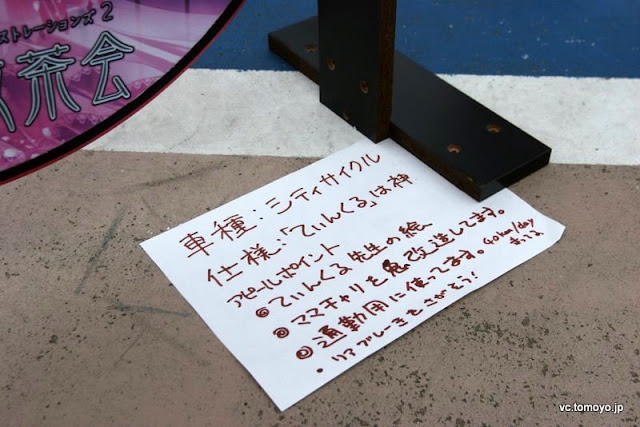 ストレーションズ2
茶会
車種：シティサイクル
仕様：「てぃんくる」は神
アピールポイント
◎てぃんくる先生の絵
◎ママチャリを鬼改造してます。
◎通勤用に使ってます。40km/day
・リアブレーキをさがそう！
vc.tomoyo.jp